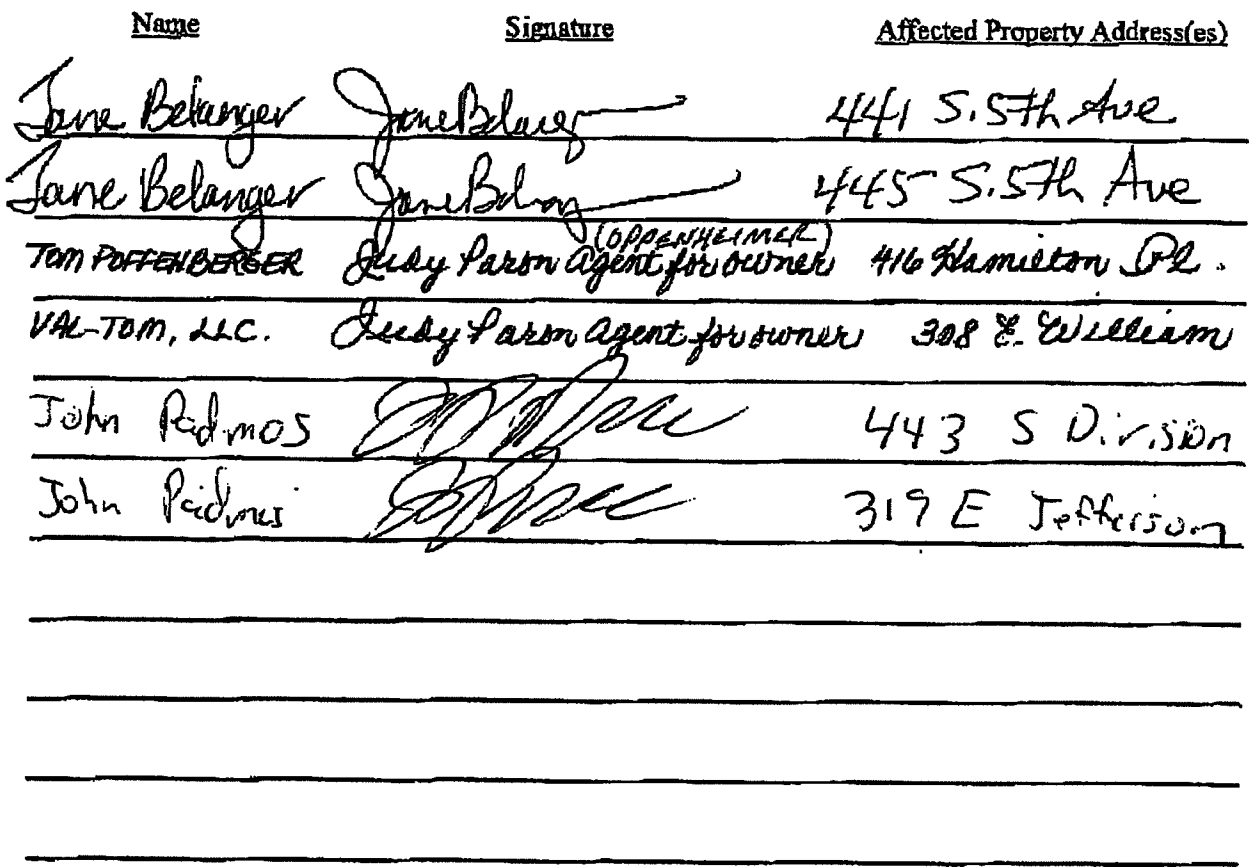 Name Signature Affected Property Address(es)
Jane Belanger Jane Belanger 441 S. 5th Ave
Jane Belanger Jane Belanger 445 S. 5th Ave
(OPPENHEIMER)
TOM POFFENBERGER Judy Paron agent for owner 416 Hamilton Pl.
VAL-TOM, LLC. Judy Paron agent for owner 308 E. William
John Padmos 443 S Division
John Padmos 319 E Jefferson